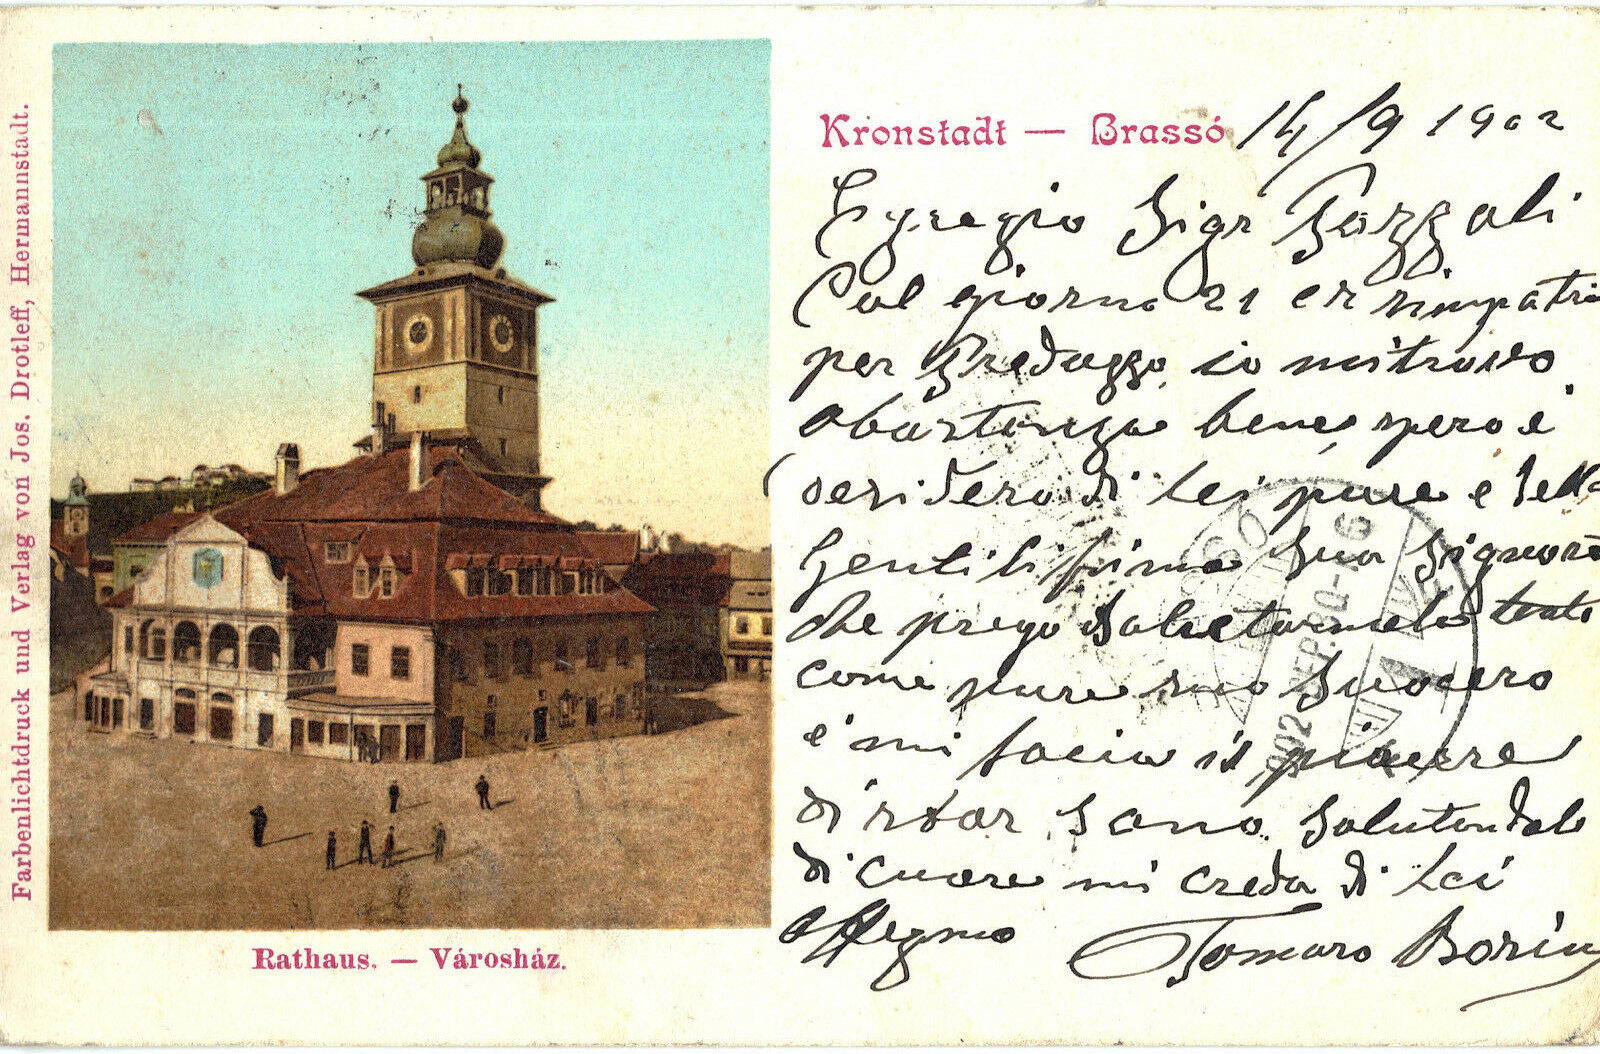 Farbenlichtdruck und Verlag von Jos. Drotleff, Hermannstadt.
Rathaus. — Városház.
Kronstadt — Brassó 14/9 1902
Egregio Sigr
Col giorno 21 er rimpatrio
per Predazzo, io mi trovo
abastanza bene, spero e
desidero di Lei pure e della
Gentilissima Sua Signora
che prego Salutarmela tanto
come pure suo Suocero
e mi facia il piacere
di star Sano. Salutandolo
di cuore mi creda di Lei
affegmo Tomaro
902 SEP. 20